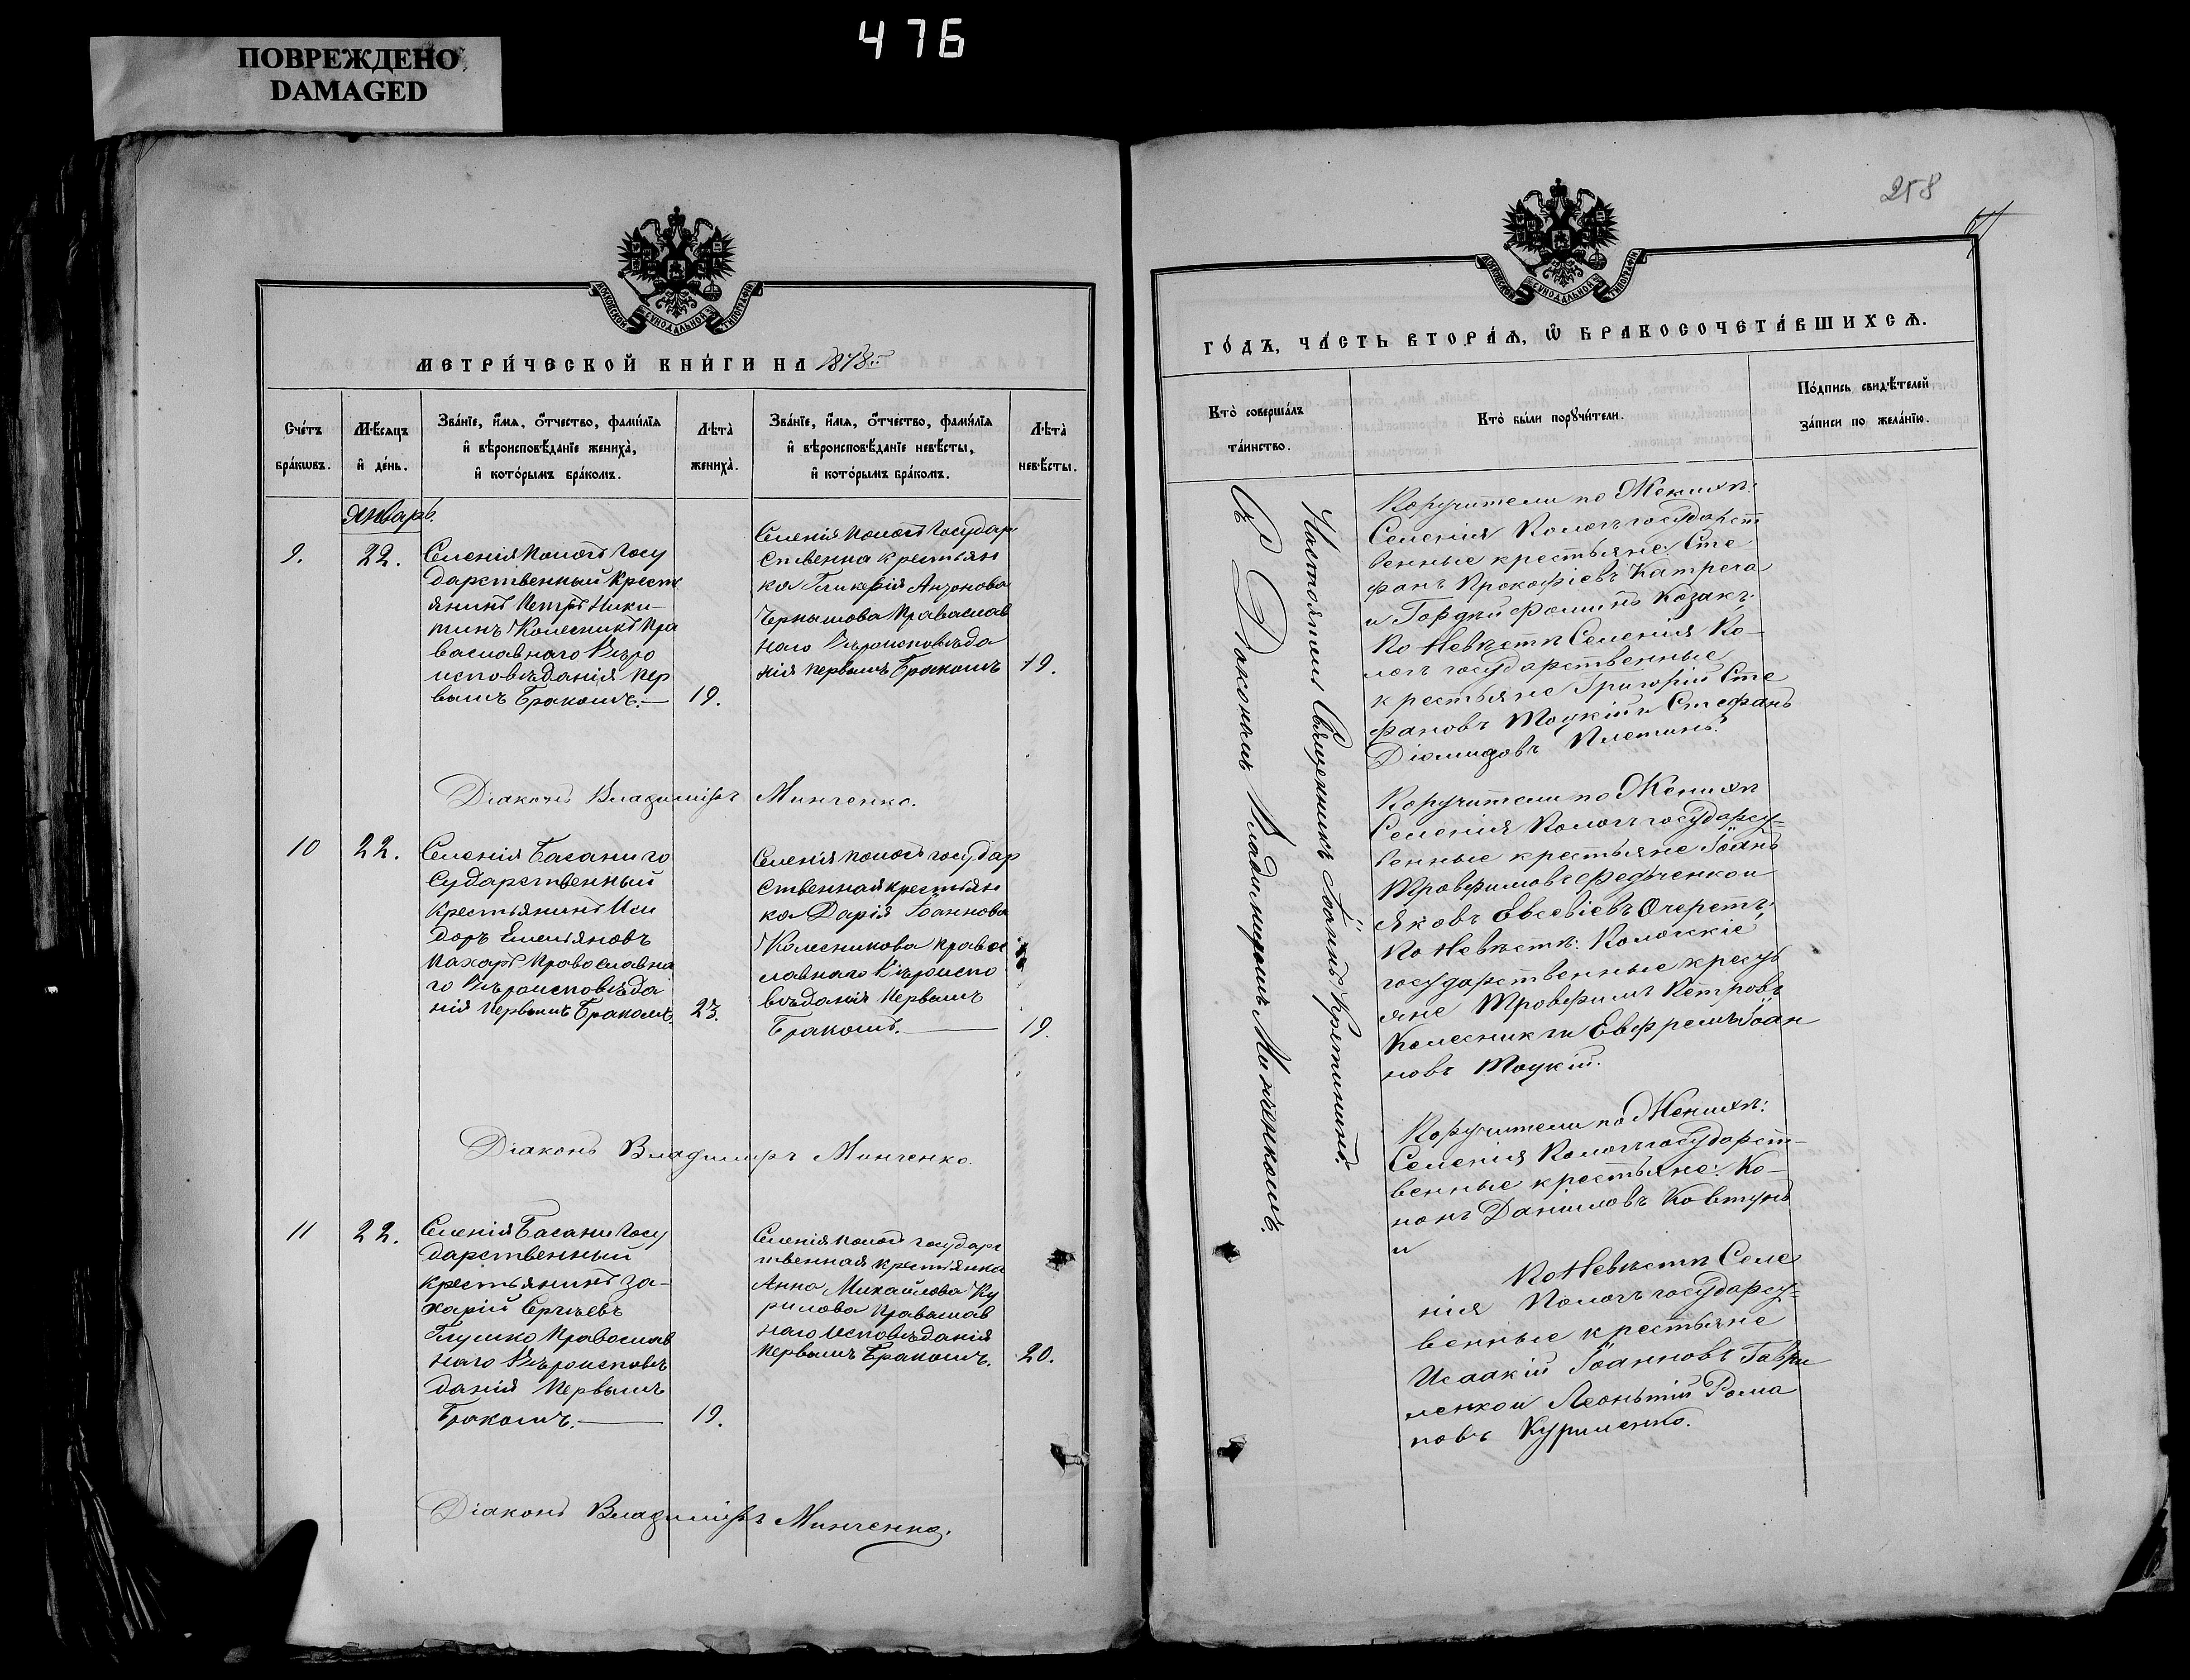 ПОВРЕЖДЕНО
DAMAGED
476
258
МОСКОВСКОЙ СѴНОДАЛЬНОЙ ТИПОГРАФІИ
МЕТРИ́ЧЕСКОЙ КНИ́ГИ НА 1878й
Сче́тъ бра́кѡвъ.
Мѣ́сяцъ и҆ де́нь.
Зва́нїе, и҆́мя, ѻ҆́тчество, фами́лїя
и҆ вѣроисповѣ́данїе жениха̀,
и҆ кото́рымъ бра́комъ.
Лѣта̀ жениха̀.
Зва́нїе, и҆́мя, ѻ҆́тчество, фами́лїя
и҆ вѣроисповѣ́данїе невѣ́сты,
и҆ кото́рымъ бра́комъ.
Лѣта̀ невѣ́сты.
Январь.
9.
22.
Селенія Пологъ Госу
дарственный Крест
янинъ Петръ Ники–
тинъ Колесникъ Пра
вославнаго Вѣро
исповѣданія пер
вымъ Бракомъ.—
19.
Селенія Пологъ Государ
ственна крестьян
ка Гликерія Антонова
Чернышова Православ
наго Вѣроисповѣда
нія первымъ Бракомъ
19.
Діаконъ Владиміръ Минченко.
10
22.
Селенія Басани го
сударственный
Крестьянинъ Иси
доръ Емельяновъ
Пахарь Православна
го Вѣроисповѣда
нія Первымъ Бракомъ.
23.
Селенія Пологъ государ
ственная крестьян
ка Дарія Іоаннова
Колесникова право
славнаго Вѣроиспо
вѣданія Первымъ
Бракомъ.—
19.
Діаконъ Владиміръ Минченко.
11
22.
Селенія Басани Госу
дарственный
крестьянинъ За–
харій Сергѣевъ
Глушко Православ
наго Вѣроисповѣ
данія Первымъ
Бракомъ.—
19.
Селенія Пологъ государс
твенная крестьянка
Анна Михайлова Ку
рилова Православ
наго Исповѣданія
Первымъ Бракомъ.
20.
Діаконъ Владиміръ Минченко.
МОСКОВСКОЙ СѴНОДАЛЬНОЙ ТИПОГРАФІИ
ГО́ДЪ, ЧА́СТЬ ВТОРА́Я, Ѡ҆ БРАКОСОЧЕТА́ВШИХСЯ.
Кто̀ соверша́лъ
та́инство.
Кто̀ бы́ли порꙋчи́тели.
По́дпись свидѣ́телей
за́писи по жела́нїю.
Настоятель Священникъ Іоаннъ
Съ Діакономъ Владиміромъ Минченкомъ.
Поручители по Женихѣ:
Селенія Пологъ государст
венные крестьяне: Сте
фанъ Прокофіевъ Катрега
и Гордѣй Фоминъ Козакъ;
По Невѣстѣ Селенія По–
логъ государственные
крестьяне Григорій Сте
фановъ Тоцкій и Стефанъ
Діомидовъ Плетинь.
Поручители по Женихѣ
Селенія Пологъ государст=
венные крестьяне Іоаннъ
Трофимовъ Федченко и
Яковъ Евсевіевъ Очеретъ;
По Невѣстѣ: Пологскіе
государственные крест
яне Трофимъ Петровъ
Колесникъ и Евфремъ Іоан
новъ Тоцкій.
Поручители по Женихѣ:
Селенія Пологъ государст–
венные крестьяне: Ко–
нонъ Даніиловъ Ковтунъ
и
По Невѣстѣ Селе
нія Пологъ государст=
венные крестьяне
Исаакій Іоанновъ Гаври
ленко и Леонтій Рома
новъ Куриленко.